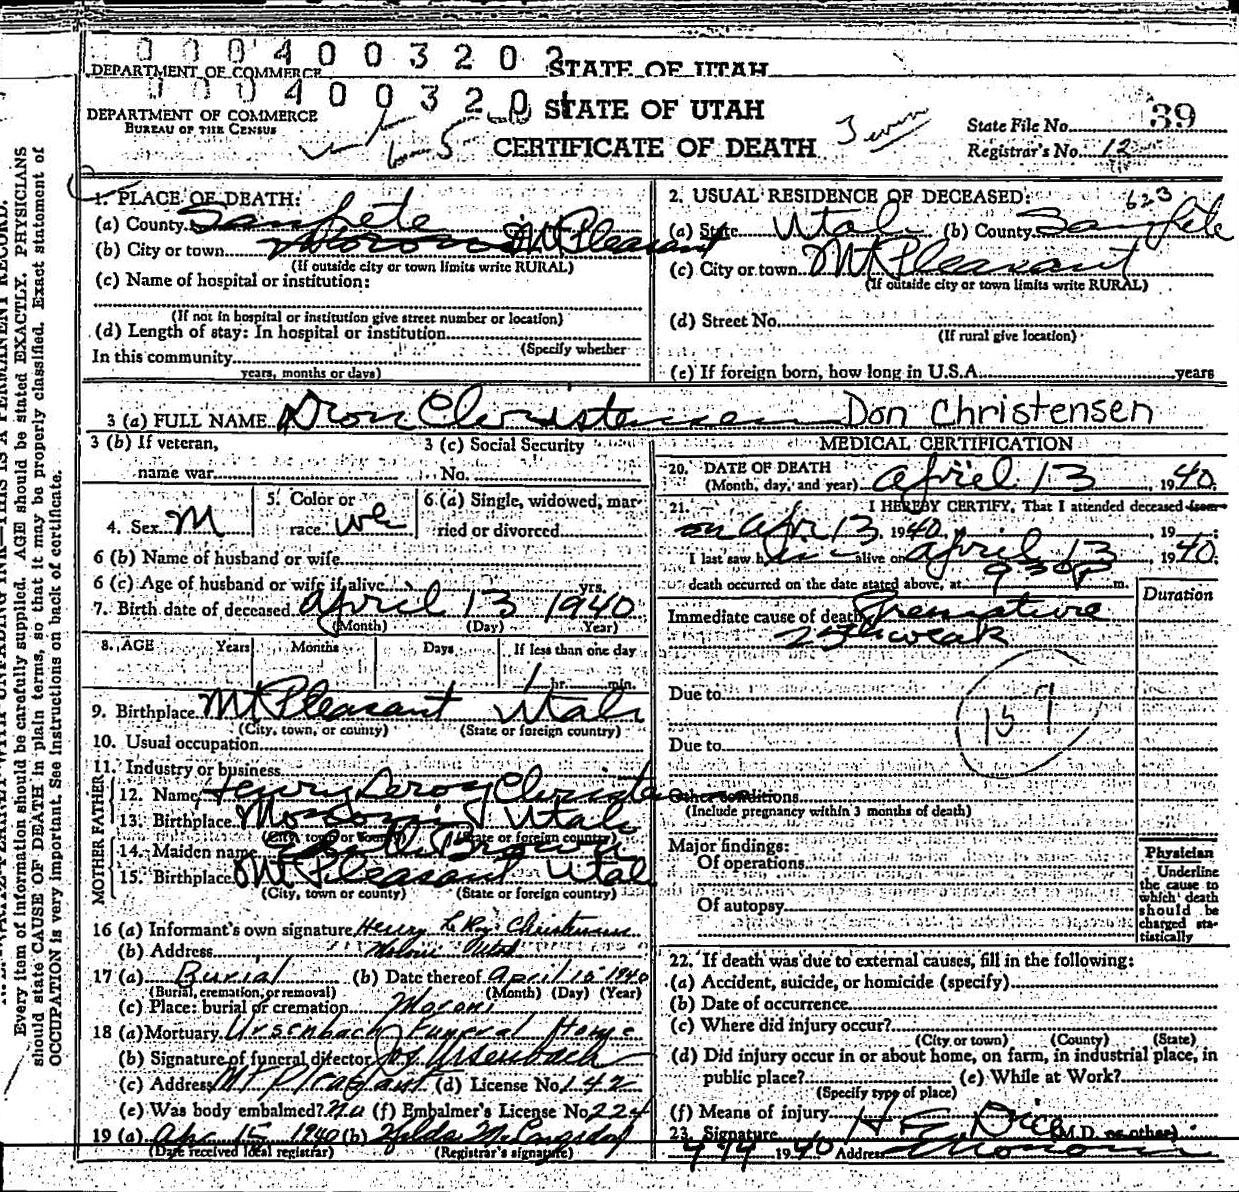 0 0 0 4 0 0 3 2 0 2 STATE OF UTAH
DEPARTMENT OF COMMERCE
0 0 0 4 0 0 3 2 0 1 STATE OF UTAH
DEPARTMENT OF COMMERCE
BUREAU OF THE CENSUS
CERTIFICATE OF DEATH
State File No. 39
Registrar's No. 12
Every item of information should be carefully supplied. AGE should be stated EXACTLY. PHYSICIANS
should state CAUSE OF DEATH in plain terms, so that it may be properly classified. Exact statement of
OCCUPATION is very important. See instructions on back of certificate.
1. PLACE OF DEATH:
(a) County Sanpete
(b) City or town Moroni Mt Pleasant
(If outside city or town limits write RURAL)
(c) Name of hospital or institution:
(If not in hospital or institution give street number or location)
(d) Length of stay: In hospital or institution
(Specify whether
In this community
years, months or days)
2. USUAL RESIDENCE OF DECEASED: 623
(a) State Utah (b) County Sanpete
(c) City or town Mt Pleasant
(If outside city or town limits write RURAL)
(d) Street No.
(If rural give location)
(e) If foreign born, how long in U.S.A. years
3 (a) FULL NAME Dron Christensen Don Christensen
3 (b) If veteran,
name war
3 (c) Social Security
No.
4. Sex M
5. Color or
race wh
6 (a) Single, widowed, mar-
ried or divorced
6 (b) Name of husband or wife
6 (c) Age of husband or wife if alive yrs.
7. Birth date of deceased April 13 1940
(Month) (Day) Year)
8. AGE Years Months Days If less than one day
1 hr. min.
9. Birthplace Mt Pleasant Utah
(City, town, or county) (State or foreign country)
10. Usual occupation
11. Industry or business
FATHER
12. Name Henry Leroy Christensen
13. Birthplace Moroni Utah
(City, town or county) (State or foreign country)
MOTHER
14. Maiden name Brown
15. Birthplace Mt Pleasant Utah
(City, town or county) (State or foreign country)
16 (a) Informant's own signature Henry L Roy Christensen
(b) Address Moroni Utah
17 (a) Burial (b) Date thereof April 15 1940
(Burial, cremation, or removal) (Month) (Day) (Year)
(c) Place: burial or cremation Moroni
18 (a) Mortuary Ursenbach Funeral Home
(b) Signature of funeral director Jos Ursenbach
(c) Address Mt Pleasant (d) License No. 142
(e) Was body embalmed? No (f) Embalmer's License No. 224
19 (a) Apr 15 1940 (b) Hilda M Longsdorf
(Date received local registrar) (Registrar's signature)
MEDICAL CERTIFICATION
20. DATE OF DEATH
(Month, day, and year) April 13, 1940.
21. I HEREBY CERTIFY, That I attended deceased from
on Apr 13, 1940, 19
I last saw h im alive on April 13, 1940.
death occurred on the date stated above, at 930 P m.
Duration
Immediate cause of death Premature
25th weak
Due to
159
Due to
Other conditions
(Include pregnancy within 3 months of death)
Major findings:
Of operations
Of autopsy
Physician
Underline
the cause to
which death
should be
charged sta-
tistically
22. If death was due to external causes, fill in the following:
(a) Accident, suicide, or homicide (specify)
(b) Date of occurrence
(c) Where did injury occur?
(City or town) (County) (State)
(d) Did injury occur in or about home, on farm, in industrial place, in
public place? (e) While at Work?
(Specify type of place)
(f) Means of injury
23. Signature H E Dice (M.D. or other)
4/14 1940 Address Moroni